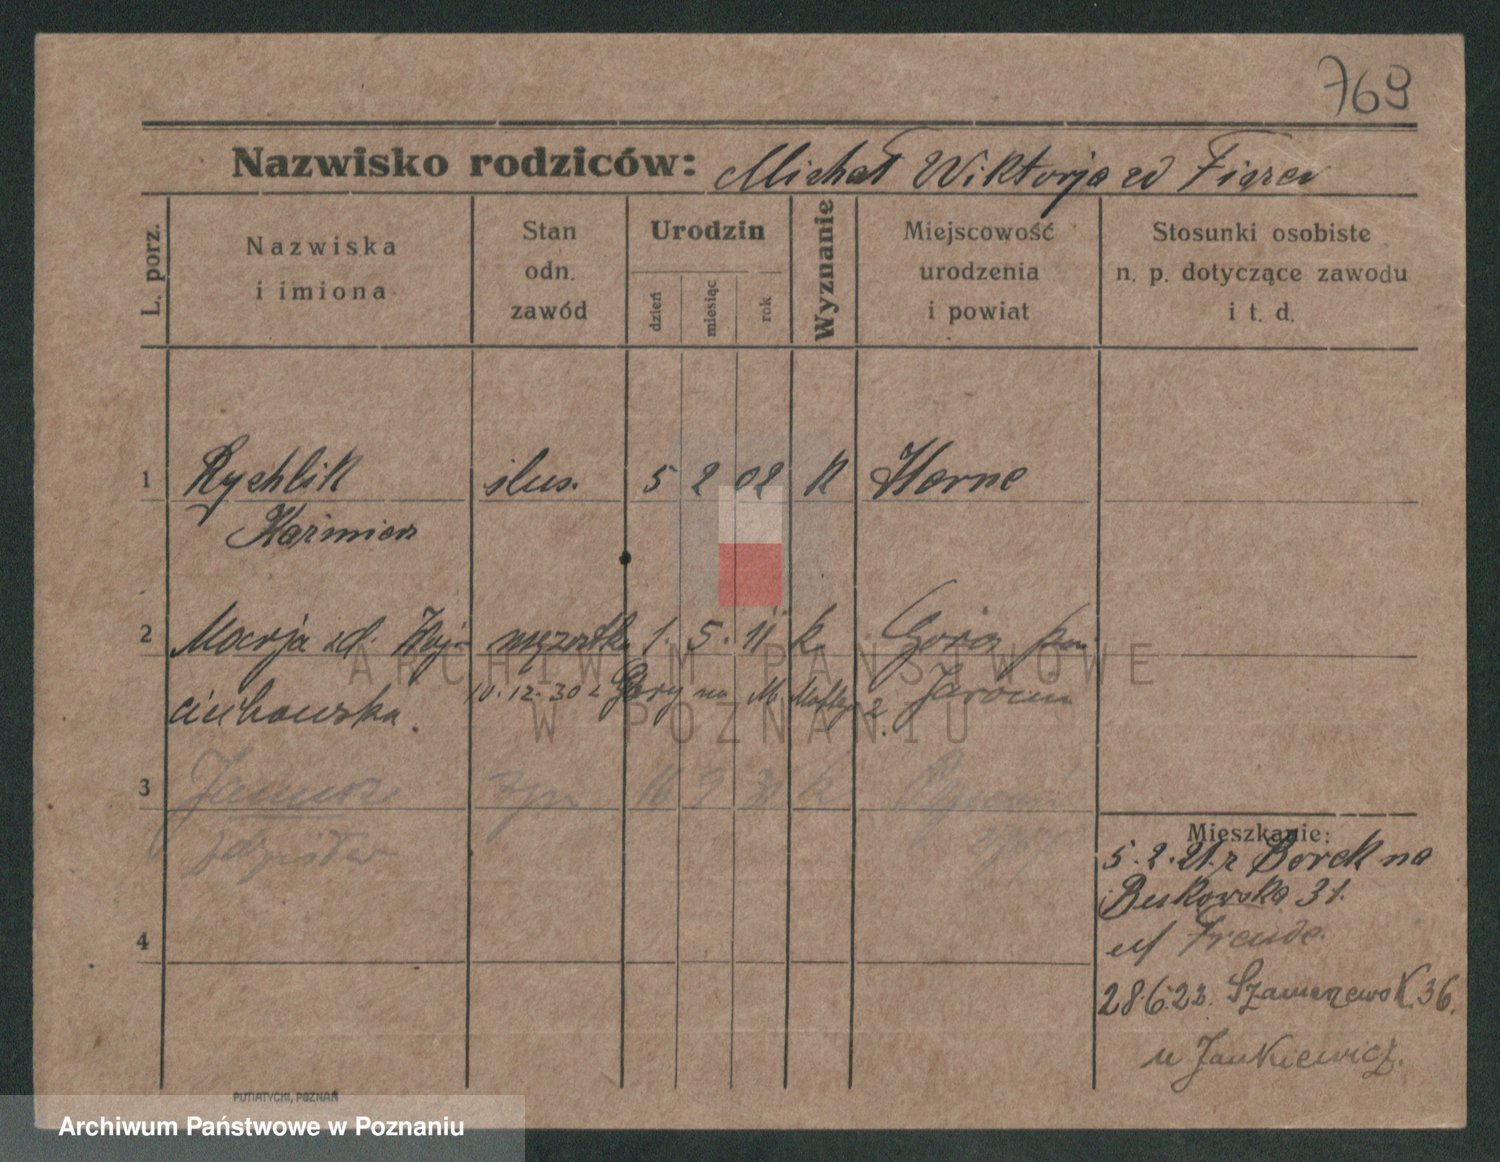 769
Nazwisko rodziców: Michał Wiktorja zd
L. porz.
Nazwiska
i imiona
Stan
odn.
zawód
Urodzin
dzień
miesiąc
rok
Wyznanie
Miejscowość
urodzenia
i powiat
Stosunki osobiste
n. p. dotyczące zawodu
i t. d.
1 Rychlik ślus. 5 2 02 K Herne
Kaźmierz
2 Marja zd. Woj- mężatka 1. 5. 11 k. Góra pow.
ciechowska. 10.12.30 z Góry na Jarocin
3 16 9 31 k
Mieszkanie:
5.2.21. z Borek na
Bukowska 31.
u/ Freude.
28.6.23. 36.
u Jankiewicz.
4
PUTIATYCKI, POZNAŃ
ARCHIWUM PAŃSTWOWE
W POZNANIU
Archiwum Państwowe w Poznaniu